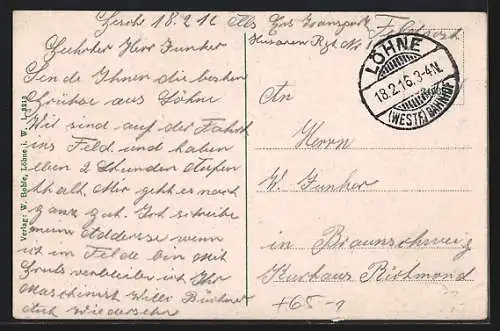 18.2.16
Husaren Rgt. No
Feldpost
Geehrter Herr Junker
Sende Ihnen die besten
Grüsse aus Löhne
Wir sind auf der Fahrt
ins Feld und haben
eben 2 Stunden Aufen
thalt. Mir geht es noch
ganz gut. Ich schreibe
meine Addresse wenn
ich im Felde bin Mit
Gruß verbleibe ich Ihr
Maschinist Willi
Auf Wiedersehn
LÖHNE
18.2.16.3-4N.
(WESTF.) BAHNHOF
An
Herrn
W. Junker
in Braunschweig
Kurhaus Richmond
+65-
Verlag: W. Bohle, Löhne i. W.